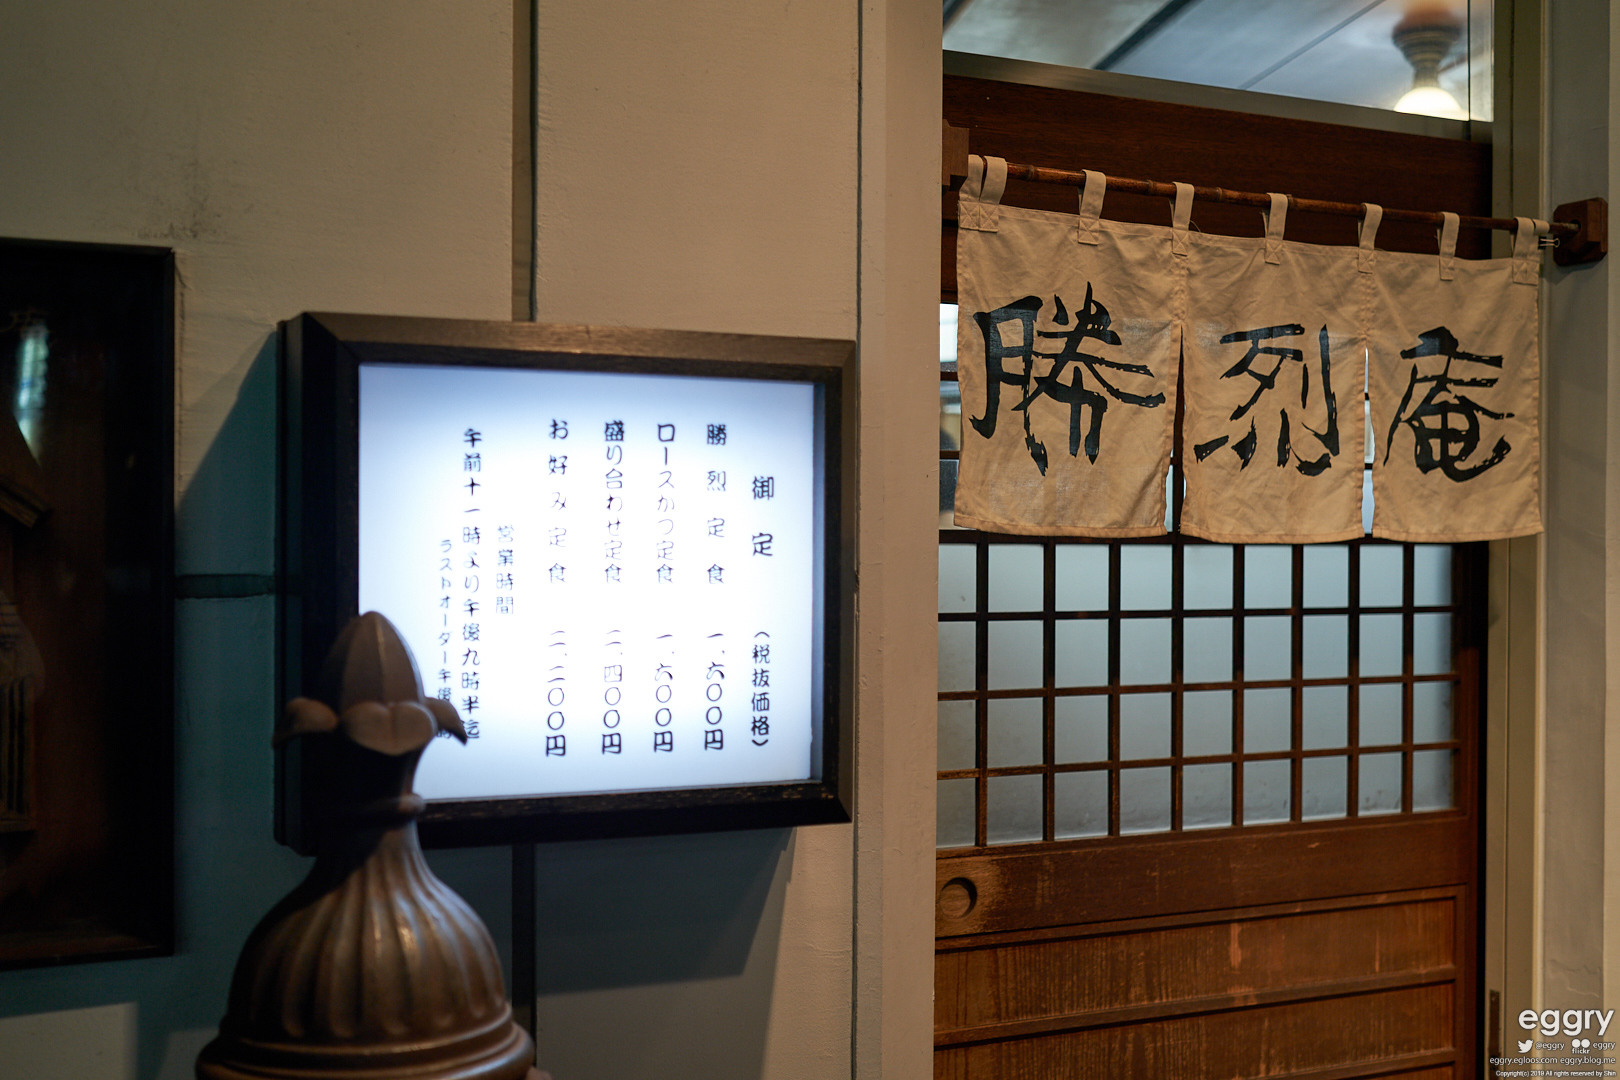 勝烈庵
御定
(税抜価格)
勝烈定食 一、六〇〇円
ロースかつ定食 一、六〇〇円
盛り合わせ定食 二、四〇〇円
お好み定食 二、二〇〇円
営業時間
午前十一時より午後九時半迄
ラストオーダー午後
eggry
@eggry
flickr
eggry
eggry.egloos.com eggry.blog.me
Copyright(c) 2019 All rights reserved by Shin